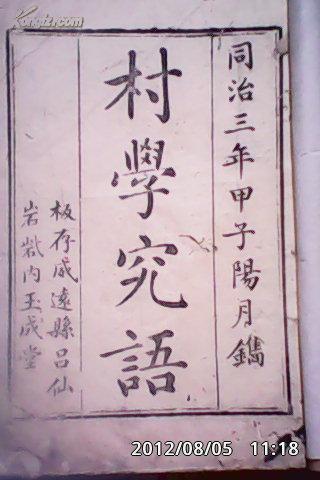 同治三年甲子陽月鐫
村學究語
板存威遠縣呂仙
岩觜内玉成堂
kongfz.com
2012/08/05 11:18